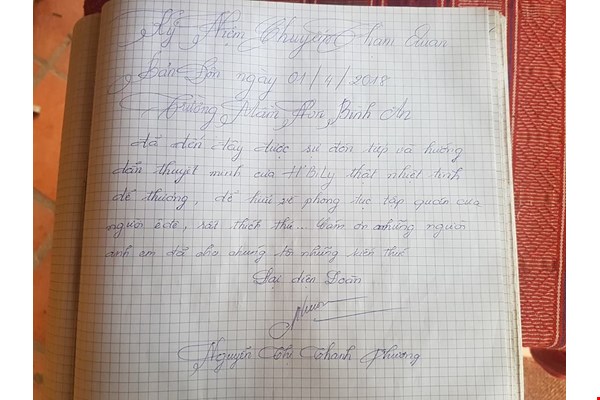 Kỷ Niệm Chuyến Thăm Quan
Bản Đôn ngày 01/4/2018
Trường Mầm Non Bình An
đã đến đây được sự đón tiếp và hướng
dẫn thuyết minh của H'BiLy thật nhiệt tình
dễ thương, để hiểu về phong tục tập quán của
người êđê, rất thích thú... Cảm ơn những người
anh em đã cho chúng tôi những kiến thức
Đại diện Đoàn
Nguyễn Thị Thanh Phương